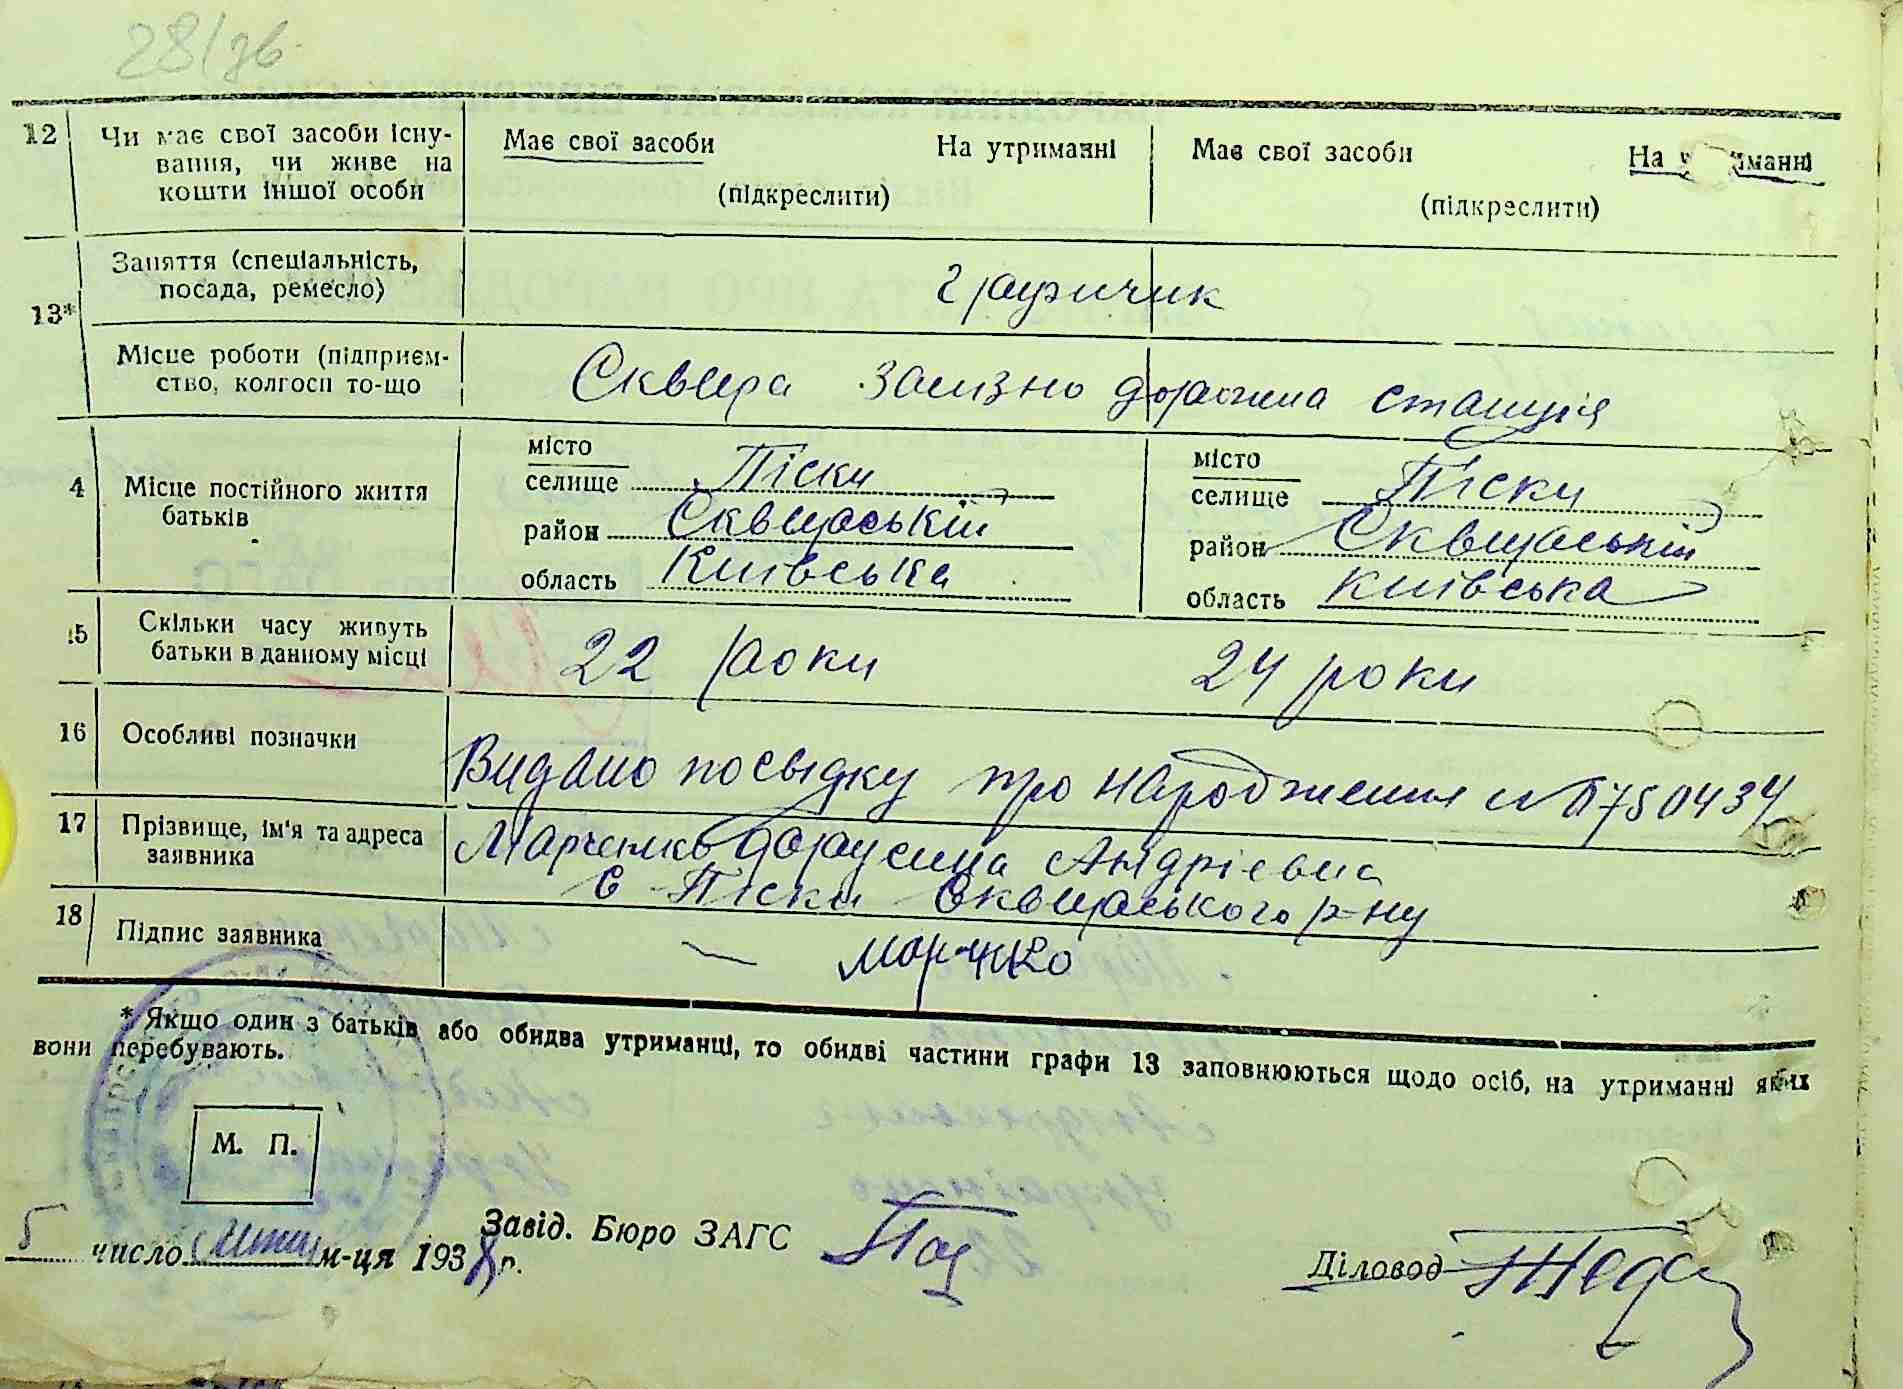 28/зв
12 Чи має свої засоби існу-
вання, чи живе на
кошти іншої особи
Має свої засоби На утриманні
(підкреслити)
Має свої засоби На утриманні
(підкреслити)
13*
Заняття (спеціальність,
посада, ремесло)
грузчик
Місце роботи (підприєм-
ство, колгосп то-що
Сквира залізно дорожна станція
4 Місце постійного життя
батьків
місто
селище Піски
район Сквирській
область Київська
місто
селище Піски
район Сквирській
область Київська
15 Скільки часу живуть
батьки в данному місці
22 роки 24 роки
16 Особливі позначки
Видано посвідку про народження № 750434
17 Прізвище, ім'я та адреса
заявника
Марченко Андрієвна
с Піски Сквирського р-ну
18 Підпис заявника
— Марченко
* Якщо один з батьків або обидва утриманці, то обидві частини графи 13 заповнюються щодо осіб, на утриманні яких
вони перебувають.
М. П.
5 число м-ця 1938 р.
Завід. Бюро ЗАГС
Діловод